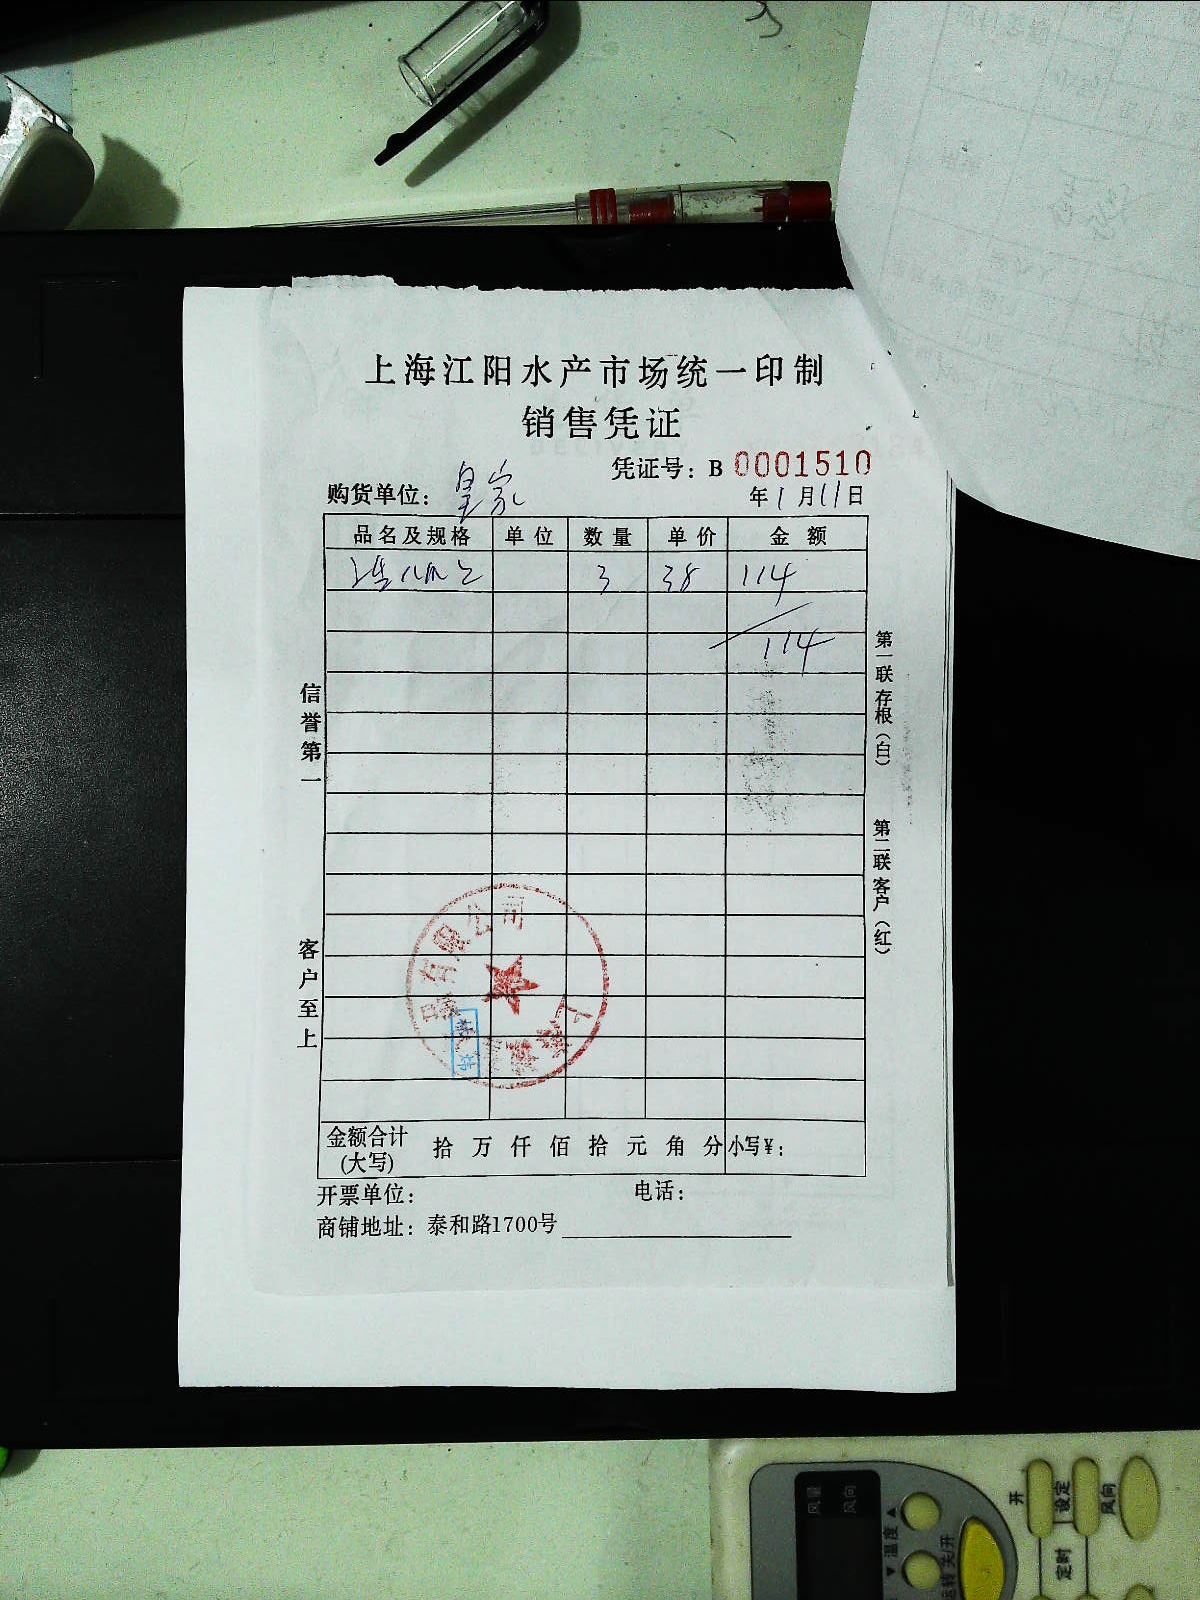 上海江阳水产市场统一印制
销售凭证
凭证号：B 0001510
购货单位：皇家
年1月11日
品名及规格 单位 数量 单价 金额
3 38 114
114
信誉第一
客户至上
第一联存根（白）
第二联客户（红）
有限公司
上海
金额合计(大写) 拾万仟佰拾元角分 小写¥：
开票单位： 电话：
商铺地址：泰和路1700号
风量 风向
温度
开 设定 风向
定时
运转 关/开